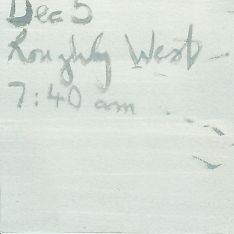 Dec 5
Roughly West
7:40 am